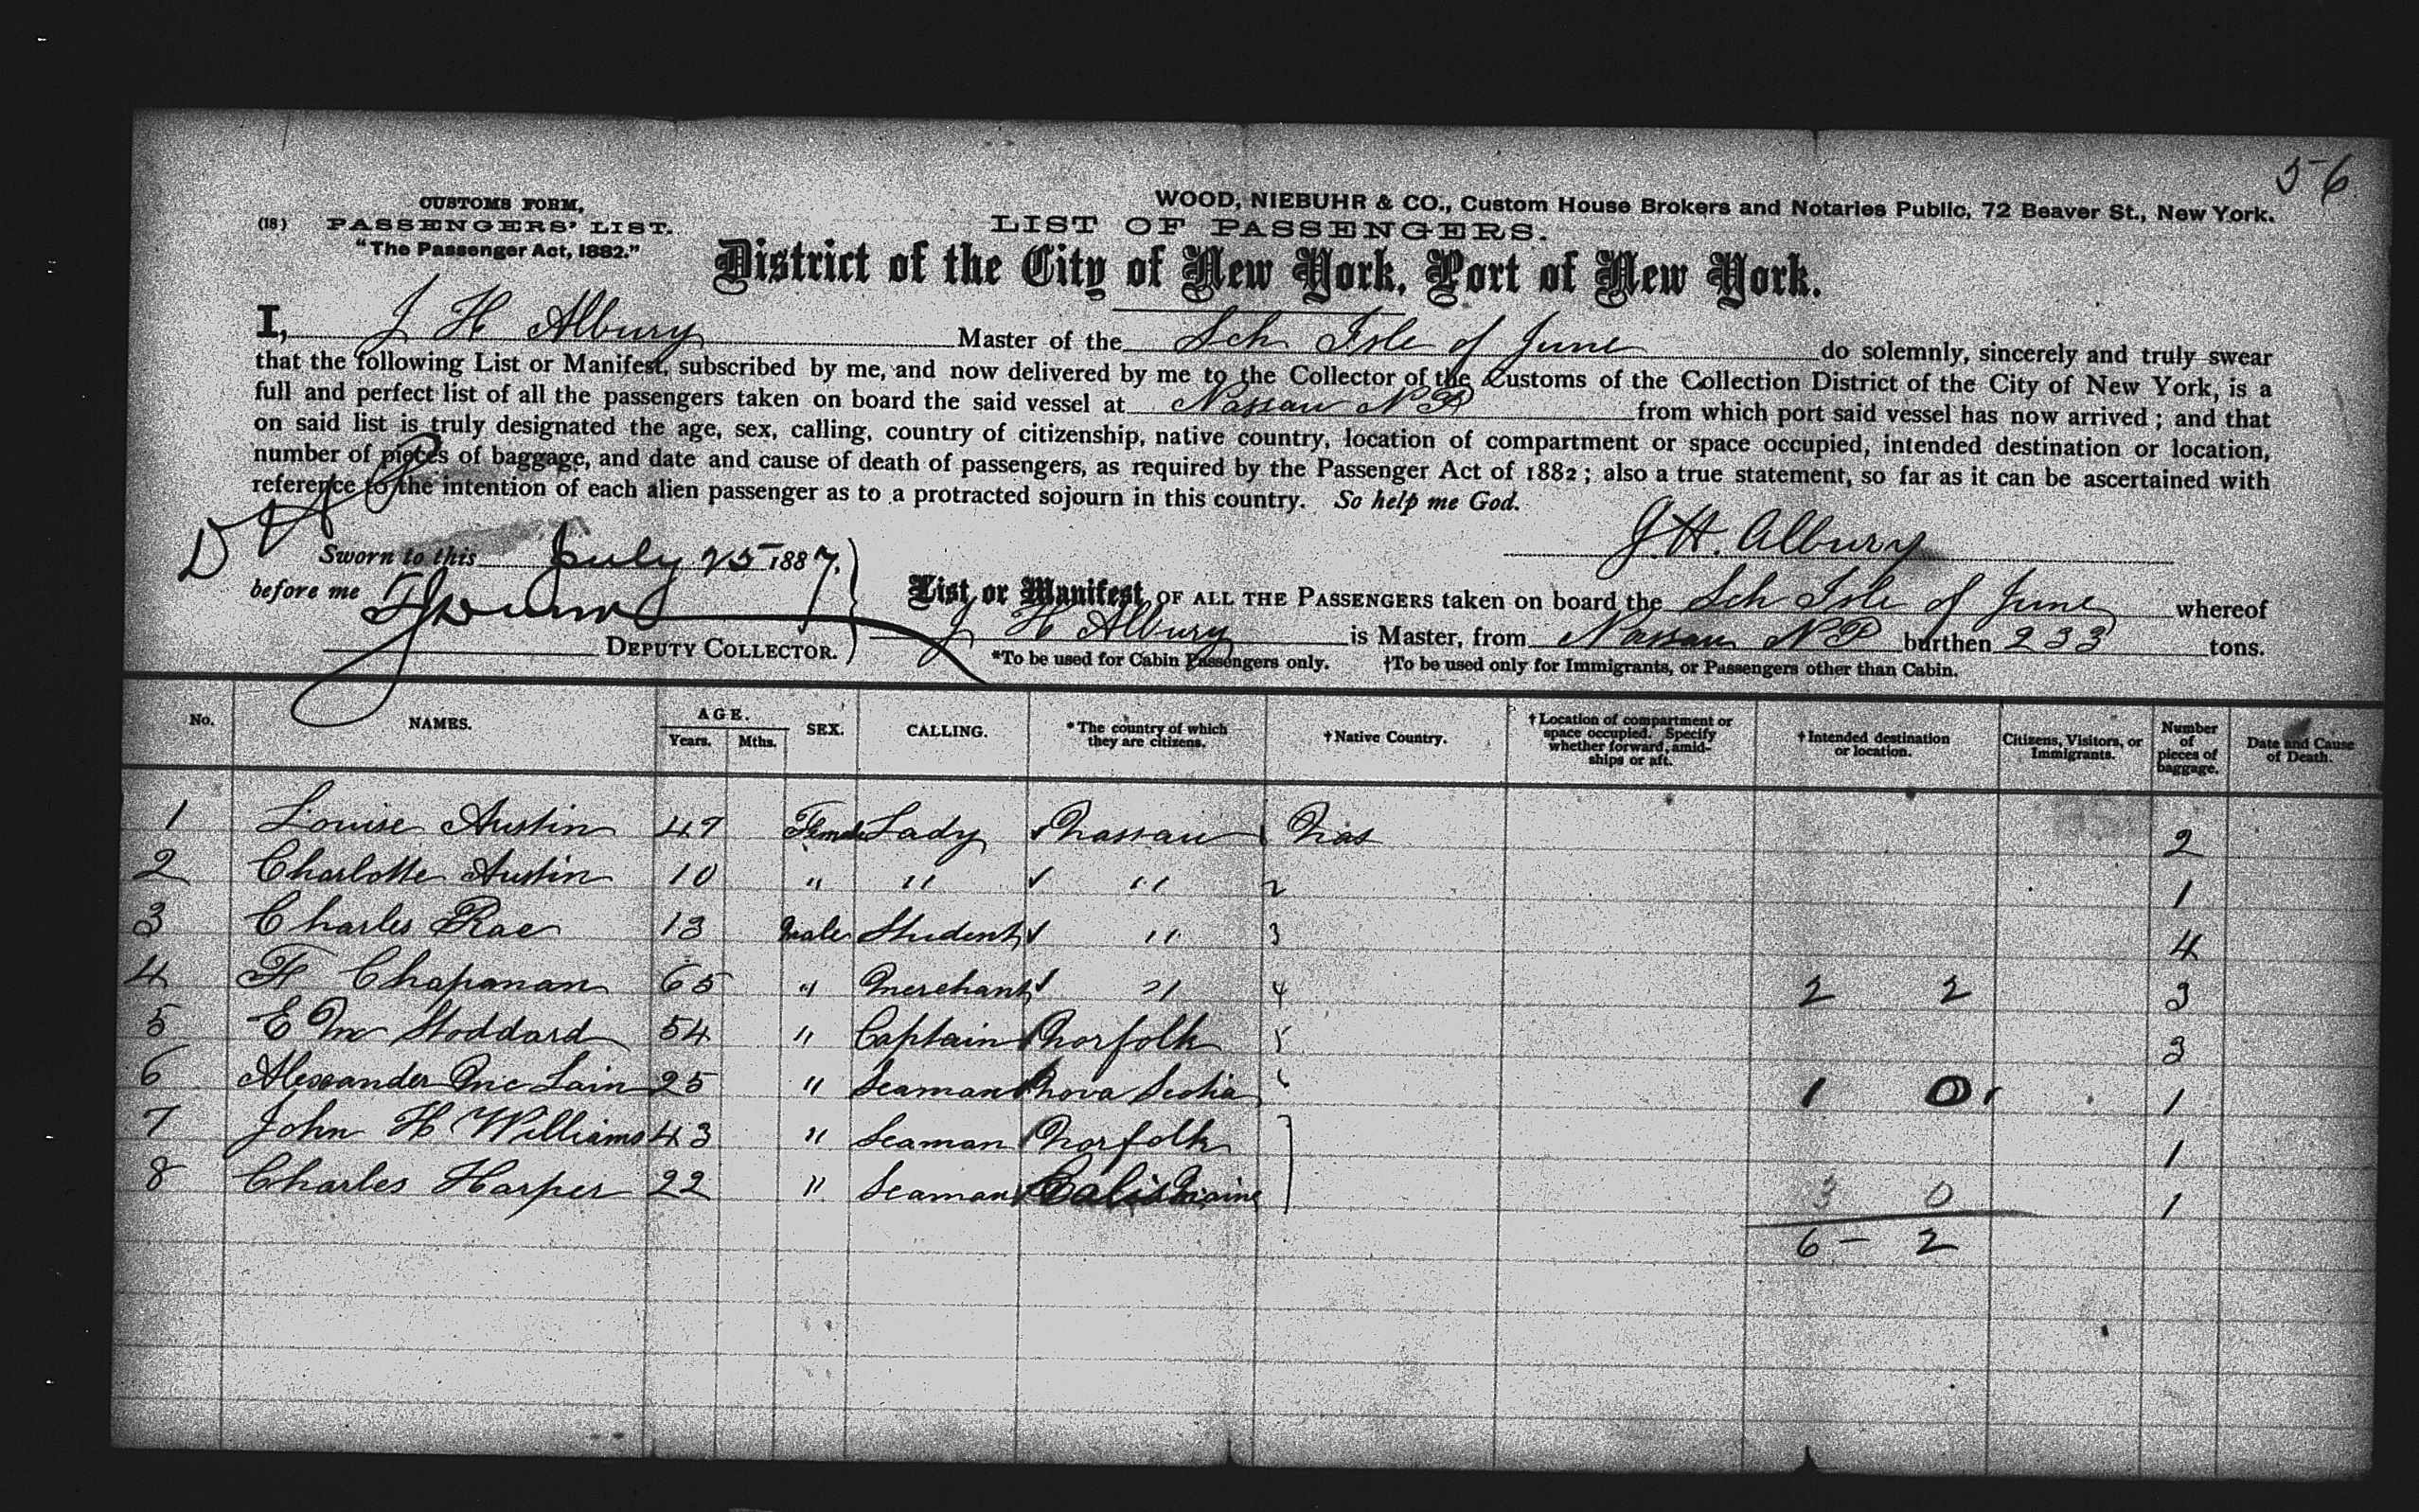 56
CUSTOMS FORM,
(18) PASSENGERS' LIST.
"The Passenger Act, 1882."
WOOD, NIEBUHR & CO., Custom House Brokers and Notaries Public, 72 Beaver St., New York.
LIST OF PASSENGERS.
District of the City of New York, Port of New York.
I, J H Albury Master of the Sch Isle of June do solemnly, sincerely and truly swear
that the following List or Manifest, subscribed by me, and now delivered by me to the Collector of the Customs of the Collection District of the City of New York, is a
full and perfect list of all the passengers taken on board the said vessel at Nassau N P from which port said vessel has now arrived; and that
on said list is truly designated the age, sex, calling, country of citizenship, native country, location of compartment or space occupied, intended destination or location,
number of pieces of baggage, and date and cause of death of passengers, as required by the Passenger Act of 1882; also a true statement, so far as it can be ascertained with
reference to the intention of each alien passenger as to a protracted sojourn in this country. So help me God.
J. H. Albury
Sworn to this July 25 1887,
before me
DEPUTY COLLECTOR.
List or Manifest OF ALL THE PASSENGERS taken on board the Sch Isle of June whereof
J H Albury is Master, from Nassau N P burthen 233 tons.
*To be used for Cabin Passengers only. †To be used only for Immigrants, or Passengers other than Cabin.
No. NAMES. AGE. Years. Mths. SEX. CALLING. *The country of which they are citizens. †Native Country. †Location of compartment or space occupied. Specify whether forward, amidships or aft. †Intended destination or location. Citizens, Visitors, or Immigrants. Number of pieces of baggage. Date and Cause of Death.
1 Louise Austin 47 Female Lady Nassau 1 Nas 2
2 Charlotte Austin 10 " " " 2 1
3 Charles Rae 13 Male Student " 3 4
4 F Chapman 65 " Merchant " 4 2 2 3
5 E M Stoddard 54 " Captain Norfolk 5 3
6 Alexander Mc Lain 25 " Seaman Nova Scotia 6 1 0 1
7 John H Williams 43 " Seaman Norfolk 1
8 Charles Harper 22 " Seaman Calis Maine 3 0 1
6 - 2